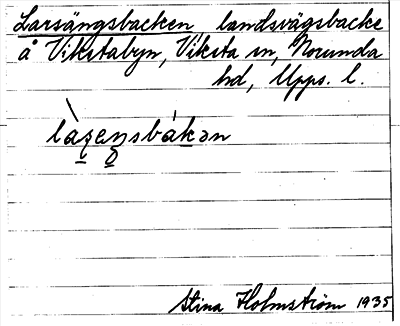 Larsängsbacken landsvägsbacke
å Vikstabyn, Viksta sn, Norunda
hd, Upps. l.
làʂeŋsbákən
Stina Holmström 1935